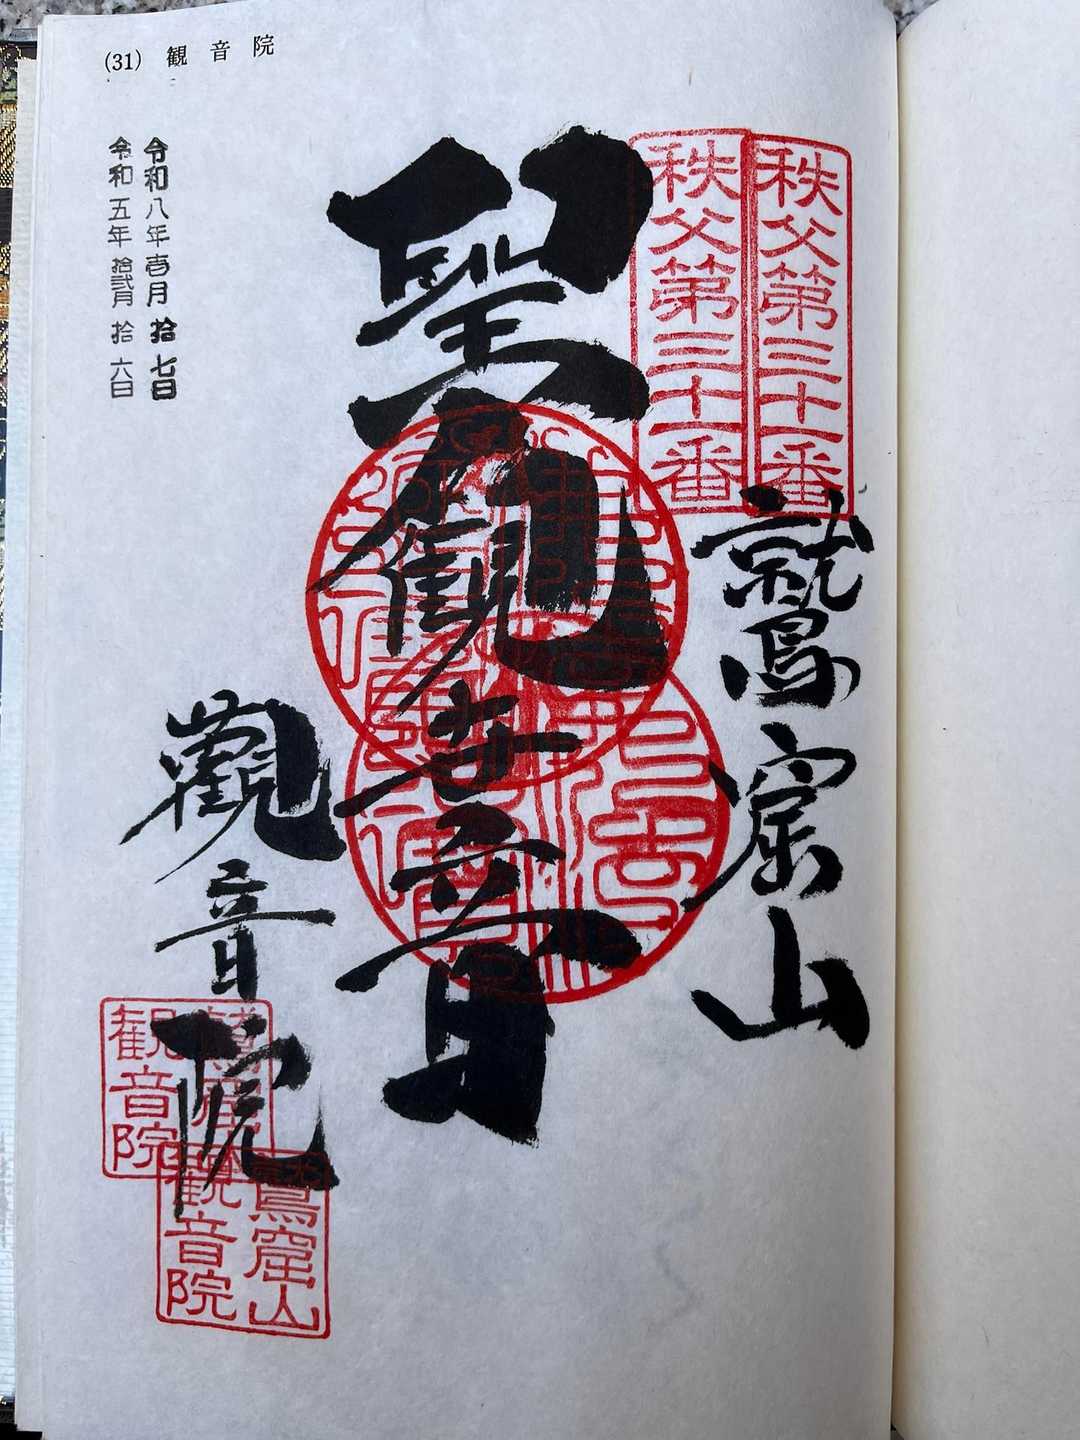 (31) 観音院
秩父第三十一番
秩父第三十一番
鷲窟山
聖観世音
觀音院
令和八年壱月拾七日
令和五年拾弐月拾六日
鷲窟山
観音院
鷲窟山
観音院